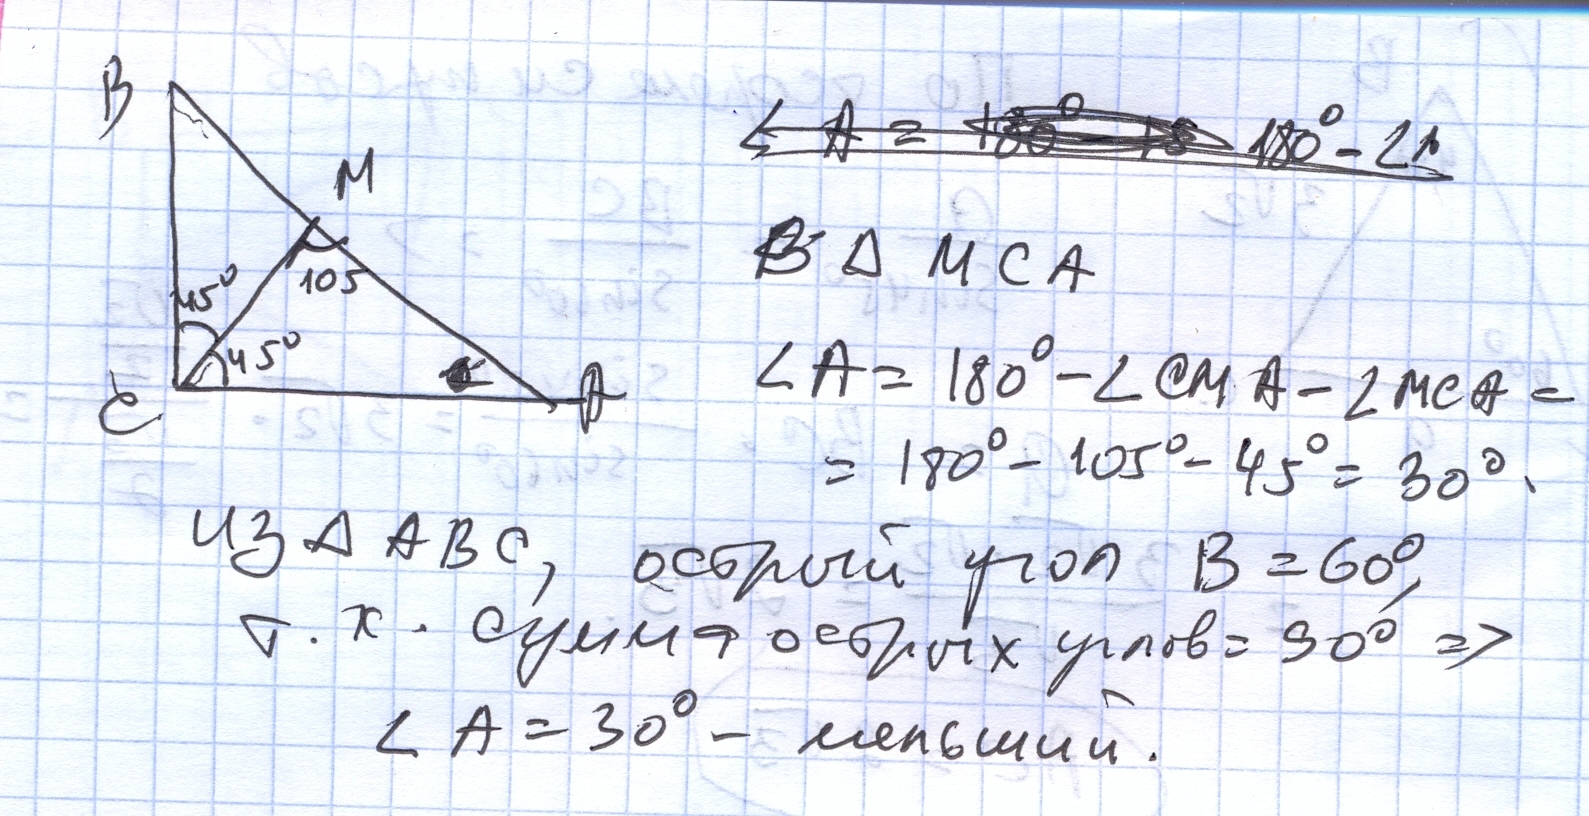 B
M
105
45°
45°
C
A
∠A = 180° - 18 180° - ∠A
В Δ MCA
∠A = 180° - ∠CMA - ∠MCA =
= 180° - 105° - 45° = 30°.
Из Δ ABC, острый угол B = 60°,
т.к. сумма острых углов = 90° =>
∠A = 30° - меньший.